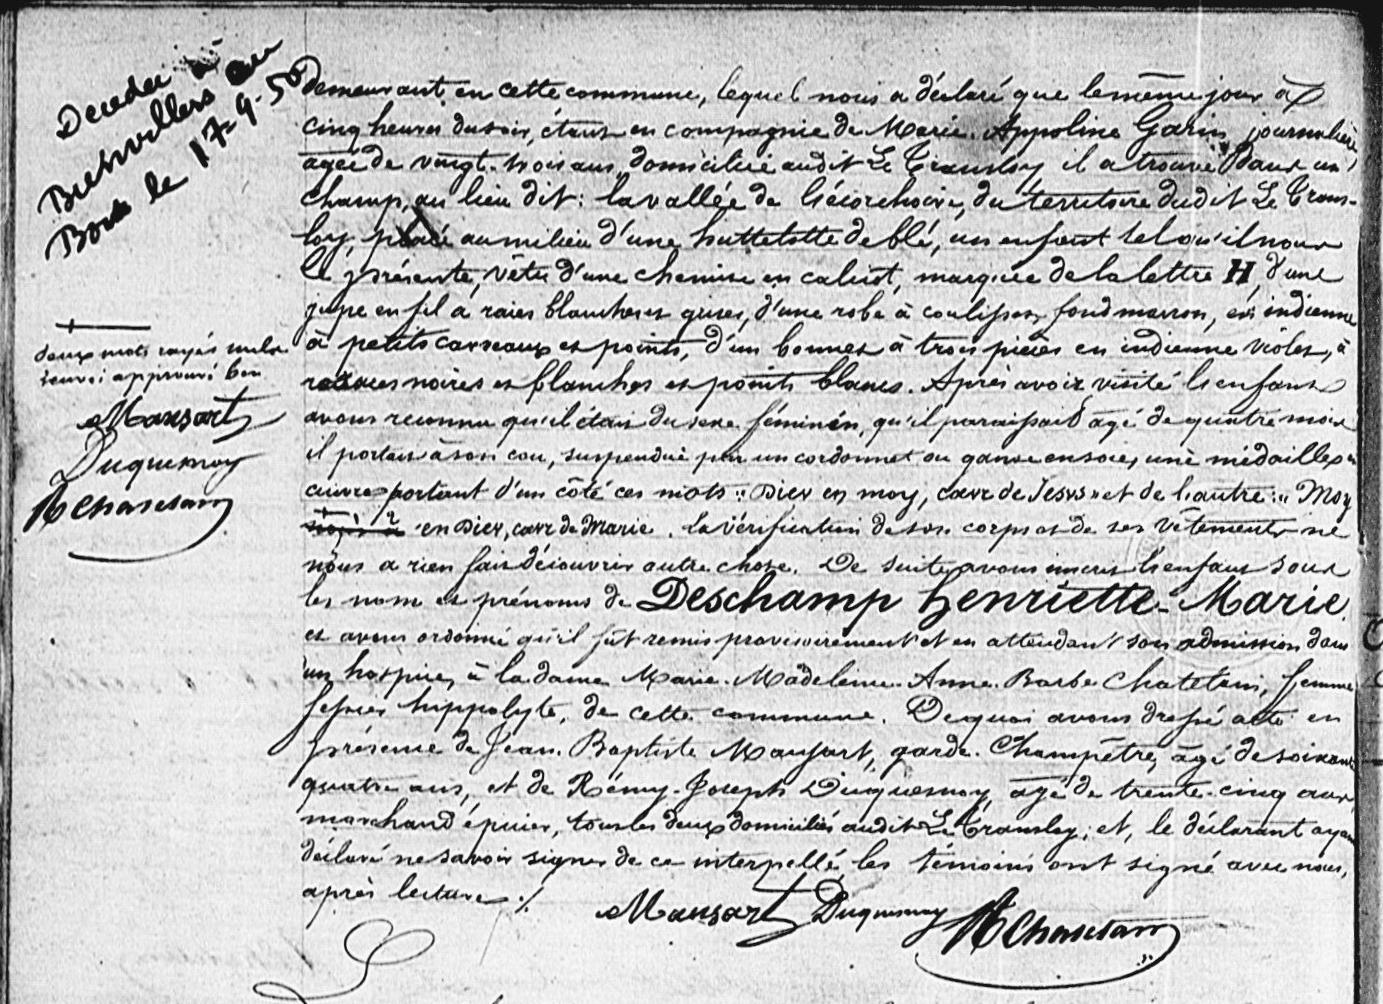 Décédée à
Bienvillers au
Bois le 17-9-50
demeurant en cette commune, lequel nous a déclaré que le même jour à
cinq heures du soir, étant en compagnie de Marie-Appoline Garin, journalière,
âgée de vingt-trois ans, domiciliée audit Le Transloy il a trouvé dans un
champ, au lieu dit: la vallée de l'écorchoire, du territoire dudit Le Trans-
loy, placé au milieu d'une huttelotte de blé, un enfant tel qu'il nous
le présente, vêtu d'une chemise en calicot, marquée de la lettre H, d'une
jupe en fil à raies blanches et grises, d'une robe à coulisses, fond marron, en indienne
à petits carreaux et points, d'un bonnet à trois pièces en indienne violet, à
noires et blanches et points blancs. Après avoir visité l'enfant
avons reconnu qu'il était du sexe féminin, qu'il paraissait âgé de quatre mois
il portait à son cou, suspendue par un cordonnet ou ganse en soie, une médaille en
cuivre portant d'un côté ces mots: "Diev en moy, cœvr de Jesvs" et de l'autre: "Moy
en Diev, cœvr de Marie. La vérification de son corps et de ses vêtements ne
nous a rien fait découvrir autre chose. De suite avons inscrit l'enfant sous
les nom et prénoms de Deschamp Henriette-Marie
et avons ordonné qu'il fût remis provisoirement et en attendant son admission dans
un hospice, à la dame Marie-Madeleine-Anne-Barbe Chatelain, femme
hippolyte, de cette commune. De quoi avons dressé acte en
présence de Jean-Baptiste Mansart, garde-Champêtre, âgé de soixante
quatre ans, et de Rémy-Joseph Duquesnoy, âgé de trente-cinq ans,
marchand épicier, tous les deux domiciliés audit Le Transloy; et, le déclarant ayant
déclaré ne savoir signer de ce interpellé, les témoins ont signé avec nous,
après lecture ./.
Mansart Duquesnoy
deux mots rayés nuls
renvoi approuvé bon
Mansart
Duquesnoy